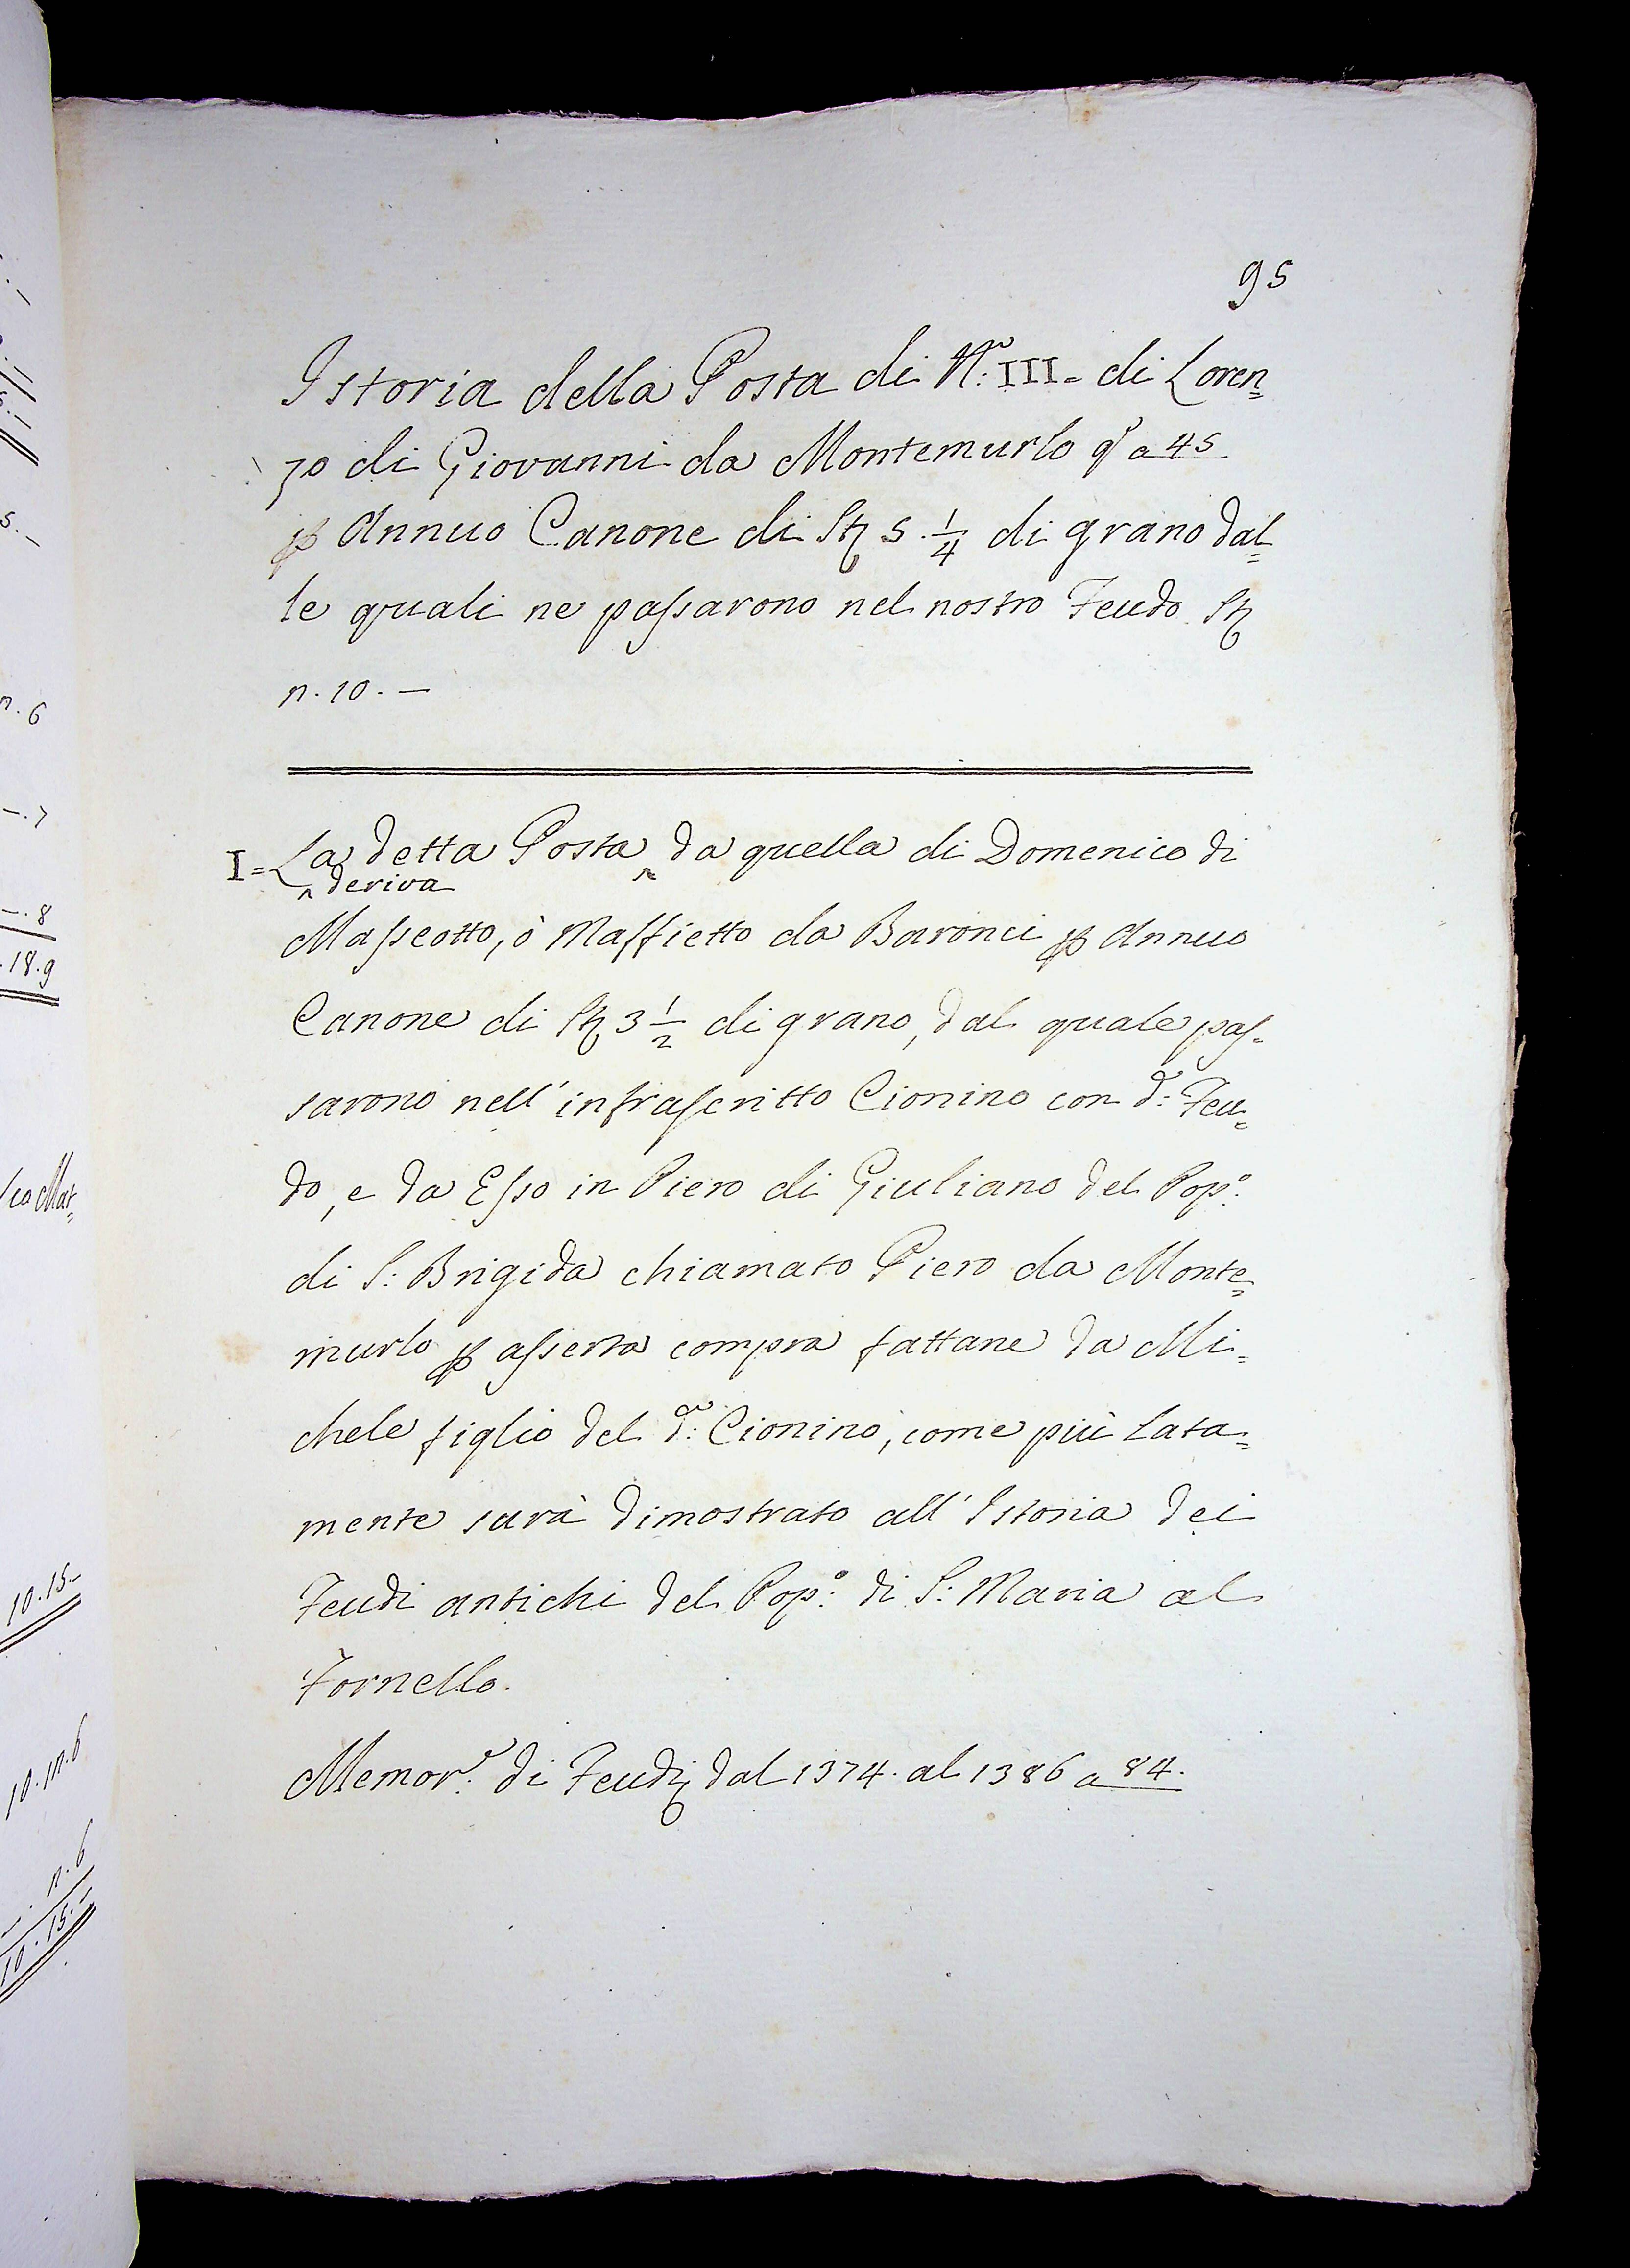 95
Istoria della Posta di N.° III= di Loren=
zo di Giovanni da Montemurlo q.o a 45.
p Annuo Canone di Sta 5.1/4 di grano dal=
le quali ne passarono nel nostro Feudo Sta
n. 10. —
I= La detta Posta ^ da quella di Domenico di
^ deriva
Masseotto, ò Maffietto da Baronci p Annuo
Canone di Sta 3 1/2 di grano, dal quale pas=
sarono nell' infrascritto Cionino con d.o Feu=
do, e da Esso in Piero di Giuliano del Pop.o
di S: Brigida chiamato Piero da Monte=
murlo p asserta compra fattane da Mi=
chele figlio del d.o Cionino, come più lata=
mente sarà dimostrato all' Istoria dei
Feudi antichi del Pop.o di S: Maria al
Fornello.
Memor.e di Feudi dal 1374. al 1386 a 84.
n. 6
—. 7
—. 8
.18.9
10.15.—
10.n.6
n.6
10.15.—